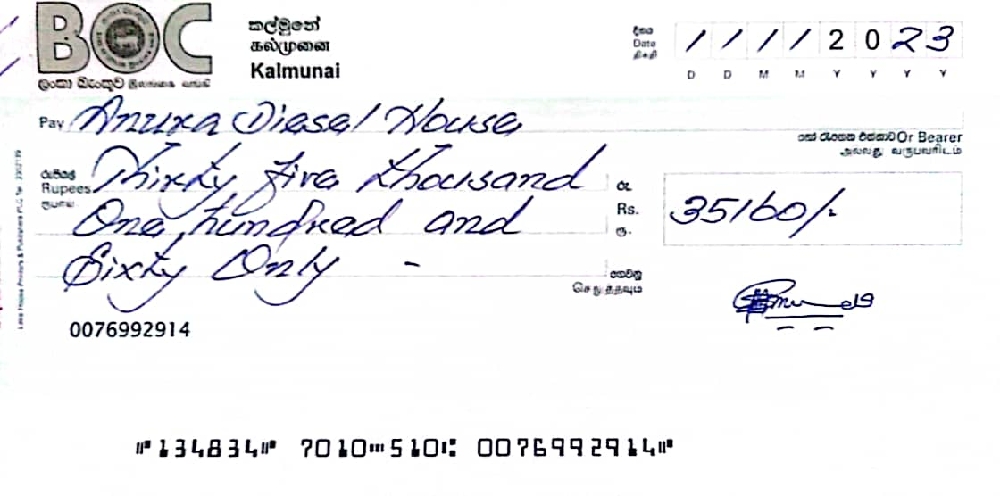 BOC
ලංකා බැංකුව இலங்கை வங்கி
කල්මුනේ
கல்முனை
Kalmunai
දිනය
Date
திகதி
1 1 1 1 2 0 2 3
D D M M Y Y Y Y
Pay Anura Diesel House
හෝ රැගෙන එන්නාට Or Bearer
அல்லது வருபவரிடம்
රුපියල්
Rupees Thirty Five thousand
ரூபாய்
රු
Rs. 35160/-
ரூ.
One hundred and
Sixty Only -
ගෙවනු
செலுத்தவும்
0076992914
⑈134834⑈ 7010⑉510⑆ 0076992914⑈